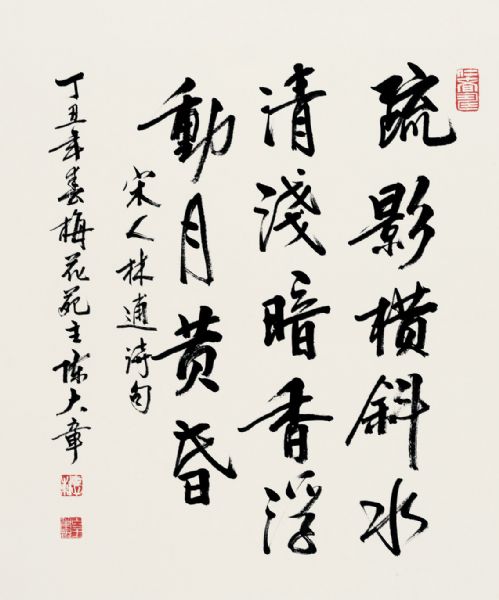 疏影橫斜水
清淺暗香浮
動月黃昏
宋人林逋詩句
丁丑年春梅花苑主陳大章